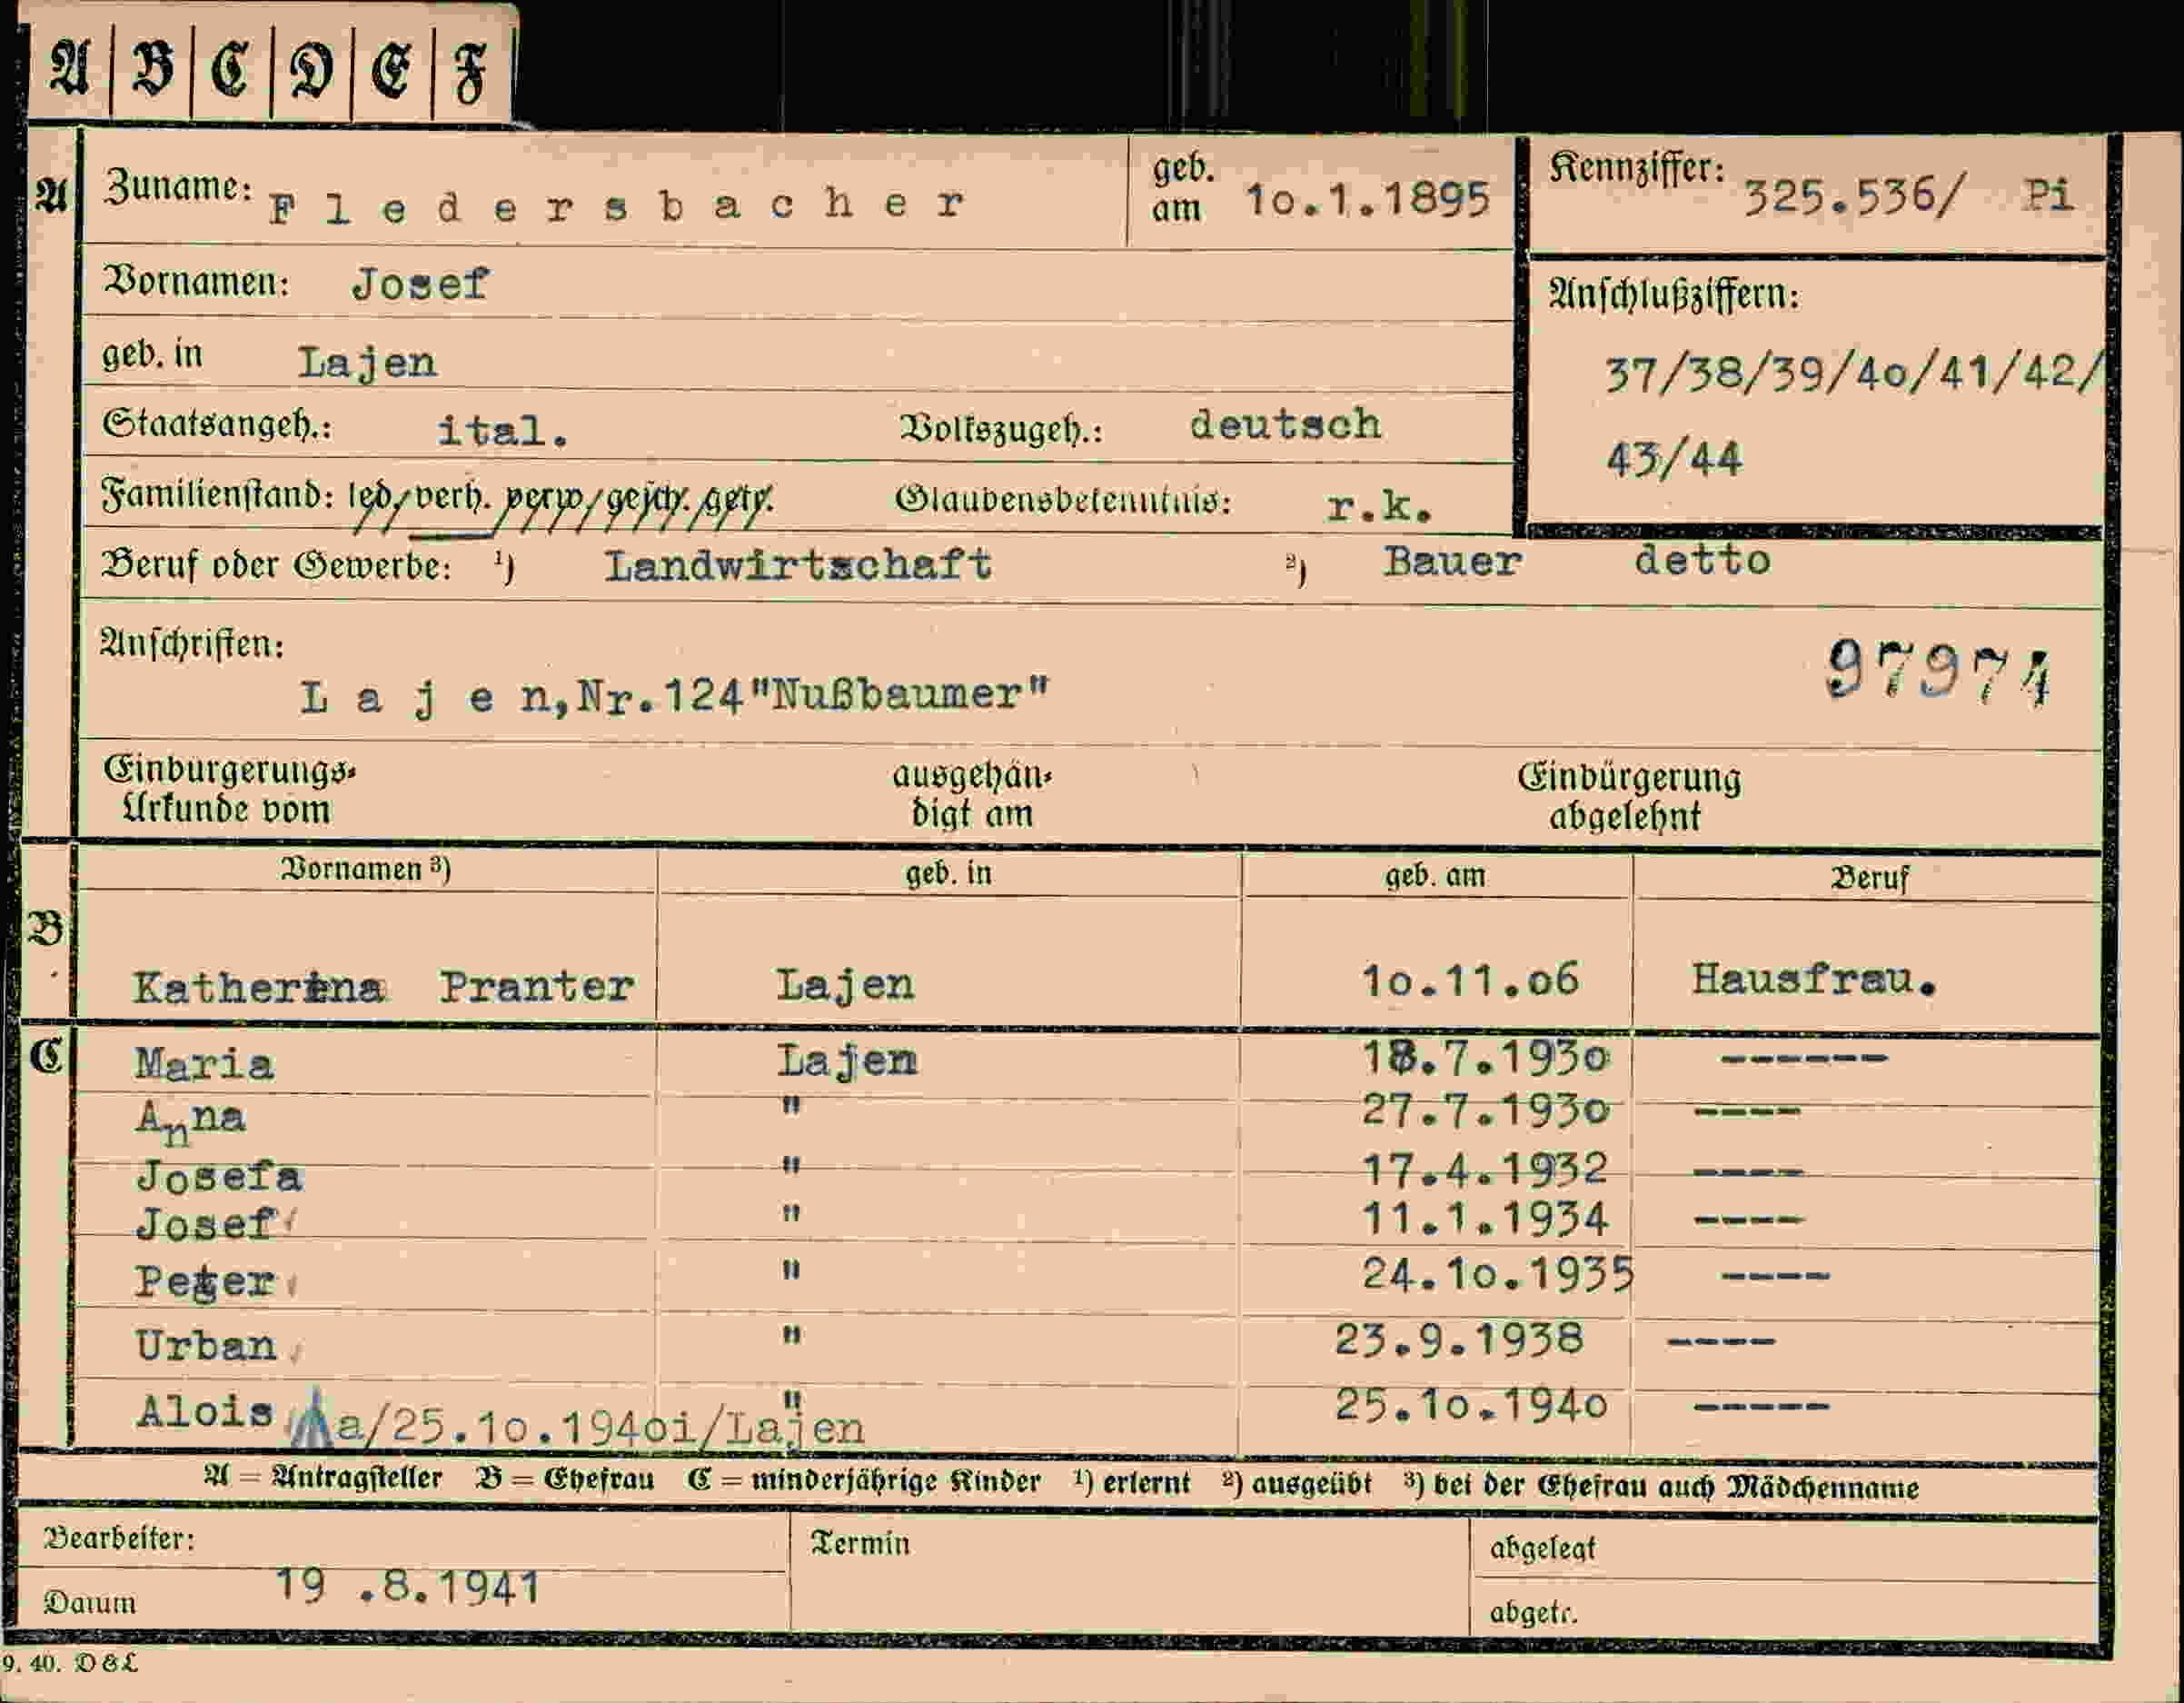 A B C D E F
A Zuname: Fledersbacher geb. am 10.1.1895 Kennziffer: 325.536/ Pi
Vornamen: Josef
Anschlußziffern:
geb. in Lajen
37/38/39/40/41/42/
Staatsangeh.: ital. Volkszugeh.: deutsch
43/44
Familienstand: led. verh. verw. gesch. getr. Glaubensbekenntnis: r.k.
Beruf oder Gewerbe: 1) Landwirtschaft 2) Bauer detto
Anschriften:
Lajen,Nr.124"Nußbaumer"
97974
Einbürgerungs-
Urkunde vom
ausgehän-
digt am
Einbürgerung
abgelehnt
Vornamen 3) geb. in geb. am Beruf
B
Katherina Pranter Lajen 10.11.06 Hausfrau.
C Maria Lajen 18.7.1930 ------
Anna " 27.7.1930 ----
Josefa " 17.4.1932 ----
Josef " 11.1.1934 ----
Peter " 24.10.1935 ----
Urban " 23.9.1938 ----
Alois " 25.10.1940 -----
a/25.10.1940i/Lajen
A = Antragsteller B = Ehefrau C = minderjährige Kinder 1) erlernt 2) ausgeübt 3) bei der Ehefrau auch Mädchenname
Bearbeiter:
Termin
abgelegt
Datum 19 .8.1941
abgetr.
9. 40. D&L